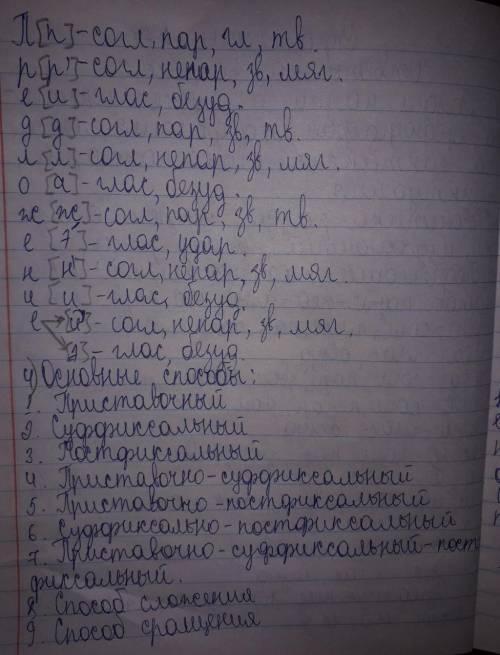 П[п]-согл, пар, гл, тв.
р[р']-согл, непар, зв, мяг.
е[и]-глас, безуд.
д[д]-согл, пар, зв, тв.
л[л]-согл, непар, зв, мяг.
о [а]-глас, безуд.
ж[ж]-согл, пар, зв, тв.
е [э]-глас, удар.
н[н']-согл, непар, зв, мяг.
и [и]-глас, безуд.
е [й']-согл, непар, зв, мяг.
э]-глас, безуд.
4) Основные способы:
1. Приставочный
2. Суффиксальный
3. Постфиксальный
4. Приставочно-суффиксальный
5. Приставочно-постфиксальный
6. Суффиксально-постфиксальный
7. Приставочно-суффиксальный-пост
фиксальный.
8. Способ сложения
9. Способ сращения